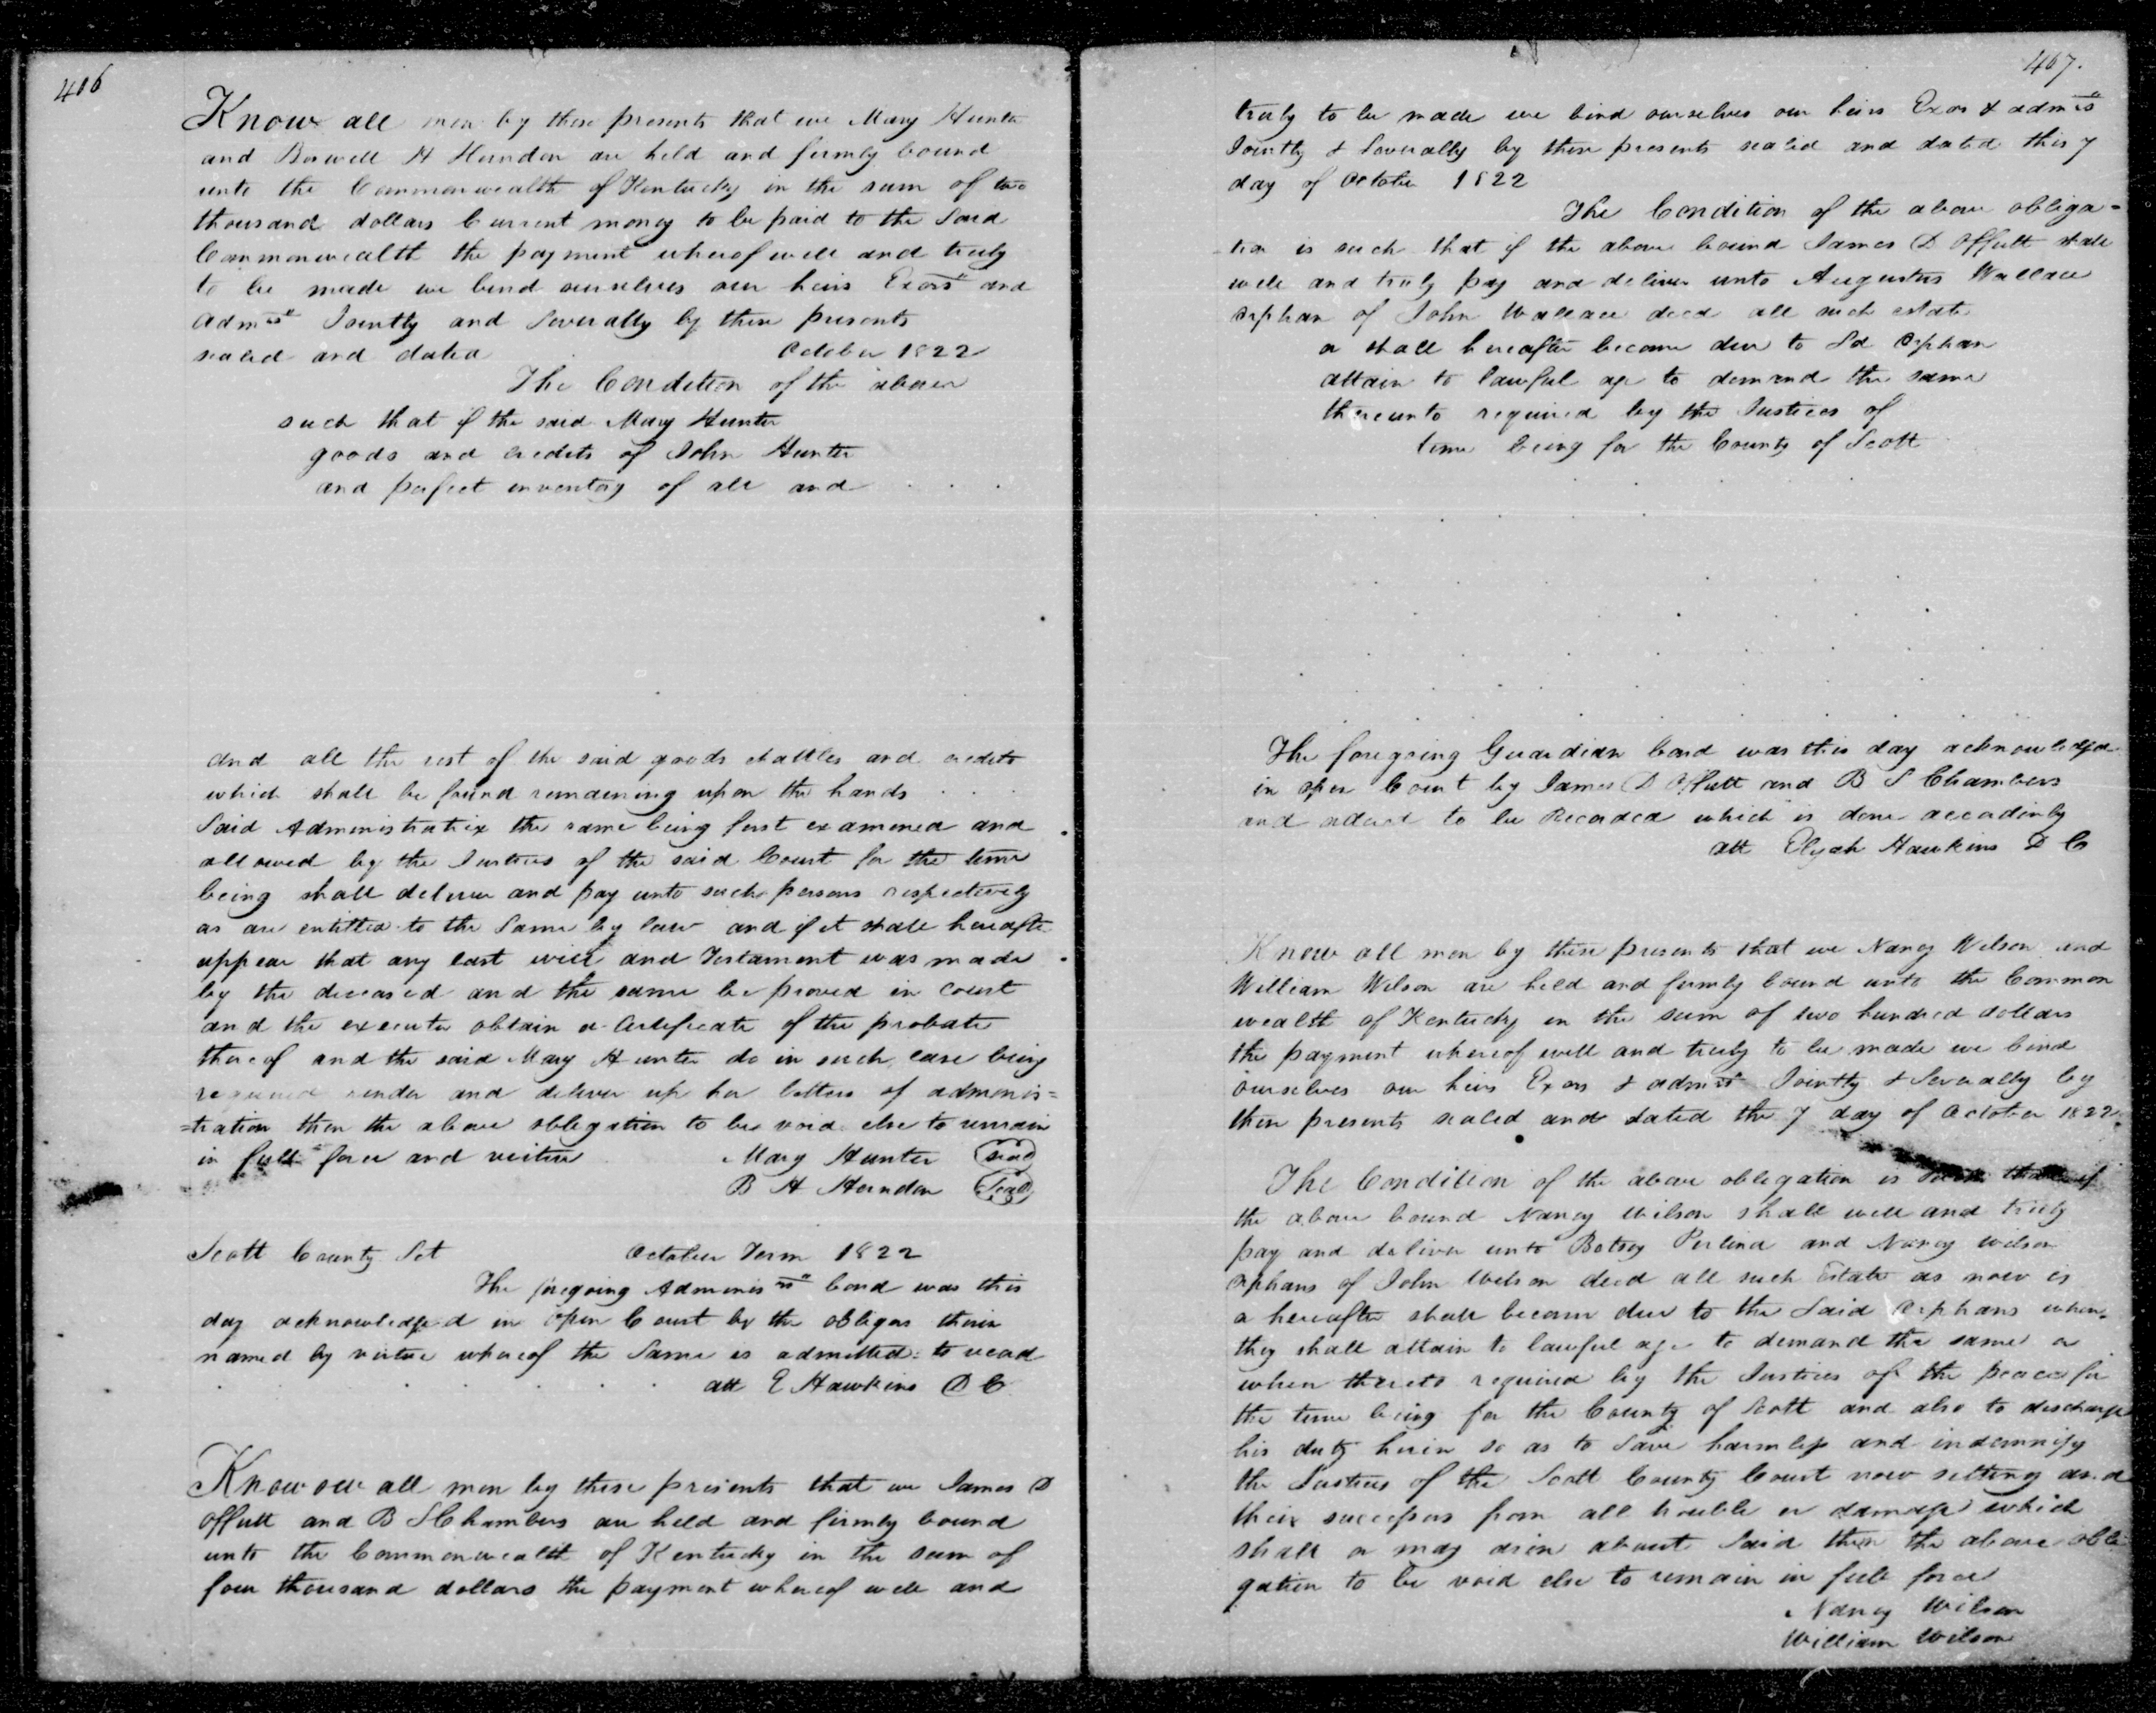 406
Know all men by these presents that we Mary Hunter
and Boswell H Herndon are held and firmly bound
unto the Commonwealth of Kentucky in the sum of two
thousand dollars Current money to be paid to the Said
Commonwealth the payment whereof well and truly
to be made we bind ourselves our heirs Exors and
admrs Jointly and Severally by these presents
sealed and dated October 1822
The Condition of the above
such that if the said Mary Hunter
goods and credits of John Hunter
and perfect inventory of all and . . .
and all the rest of the said goods chattles and credits
which shall be found remaining upon the hands . . .
Said Administratrix the same being first examined and
allowed by the Justices of the said Court for the time
being shall deliver and pay unto such persons respectively
as are entitled to the Same by law and if it shall hereafter
appear that any last will and Testament was made
by the deceased and the same be proved in court
and the executor obtain a Certificate of the probate
thereof and the said Mary Hunter do in such case being
required render and deliver up her letters of adminis=
=tration then the above obligation to be void else to remain
in full force and virtue Mary Hunter Seal
B H Herndon Seal
Scott County Sct October Term 1822
The foregoing Adminisrs bond was this
day acknowledged in open Court by the obligors therin
named by virtue whereof the Same is admitted to recad
att E Hawkins D C
Know ow all men by these presents that we James D
Offutt and B S Chambers are held and firmly bound
unto the Commonwealth of Kentucky in the sum of
four thousand dollars the payment whereof well and
407.
truly to be made we bind ourselves our heirs Exors & admrs
Jointly & Severally by these presents sealed and dated this 7
day of October 1822
The Condition of the above obliga-
tion is such that if the above bound James D Offutt shall
well and truly pay and deliver unto Augustus Wallace
orphan of John Wallace decd all such estate
or shall hereafter become due to Sd Orphan
attain to lawful age to demand the same
thereunto required by the Justices of
time being for the County of Scott
The foregoing Guardian bond was this day acknowledged
in open Court by James D Offutt and B S Chambers
and ordered to be Recorded which is done accordinly
att Elijah Hawkins D C
Know all men by these presents that we Nancy Wilson and
William Wilson are held and firmly bound unto the Common
wealth of Kentucky in the sum of two hundred dollars
the payment whereof well and truly to be made we bind
ourselves our heirs Exors & admrs Jointly & Severally by
these presents sealed and dated the 7 day of October 1822
The Condition of the above obligation is such that if
the above bound Nancy Wilson shall well and truly
pay and deliver unto Betsey Perlina and Nancy Wilson
orphans of John Wilson decd all such Estate as now is
or hereafter shall become due to the Said Orphans when
they shall attain to lawful age to demand the same or
when thereto required by the Justices of the peace for
the time being for the County of Scott and also to discharge
his duty herein so as to Save harmless and indemnify
the Justices of the Scott County Court now setting and
their successors from all trouble or damage which
shall or may arise about Said then the above obli
gation to be void else to remain in full force
Nancy Wilson
William Wilson